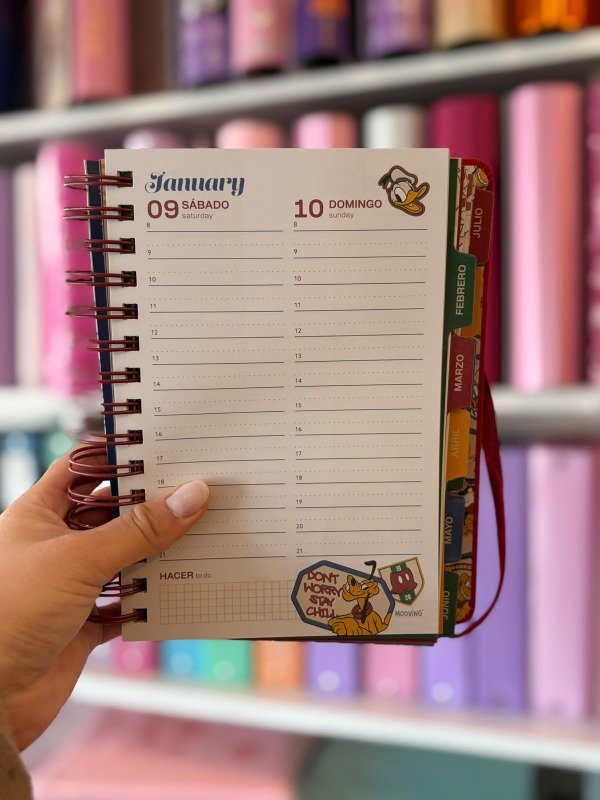 January
09 SÁBADO
saturday
10 DOMINGO
sunday
8
9
10
11
12
13
14
15
16
17
18
21
8
9
10
11
12
13
14
15
16
17
18
19
20
21
HACER to do
DON'T
WORRY
STAY
CHILL
19
28
MOOVING
JULIO
FEBRERO
MARZO
ABRIL
MAYO
JUNIO